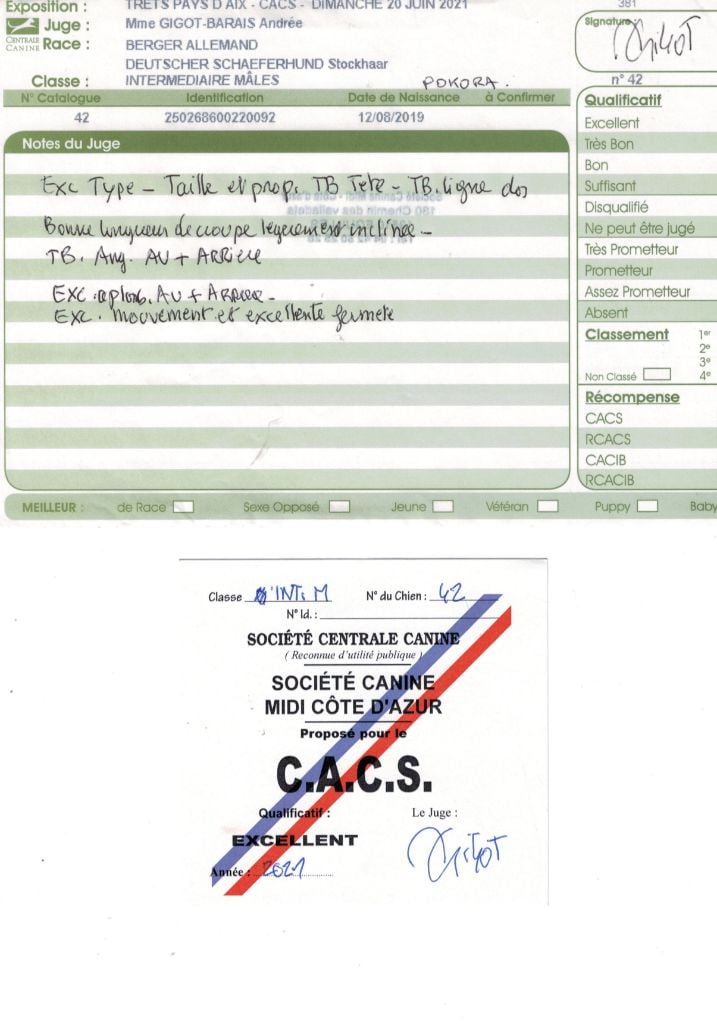 Exposition : TRETS PAYS D'AIX - CACS - DIMANCHE 20 JUIN 2021
Juge : Mme GIGOT-BARAIS Andrée
CENTRALE CANINE Race : BERGER ALLEMAND
DEUTSCHER SCHAEFERHUND Stockhaar
Classe : INTERMEDIAIRE MÂLES POKORA.
381
Signature
Gigot
n° 42
N° Catalogue Identification Date de Naissance à Confirmer
42 250268600220092 12/08/2019
Notes du Juge
Exc Type - Taille et prop. TB Tete - TB. ligne dos
Bonne longueur de croupe legerement inclinee -
TB. Ang. AV + ARRIERE
Exc. aplomb. AV + ARRIER -
Exc. mouvement et excellente fermete
Qualificatif
Excellent
Très Bon
Bon
Suffisant
Disqualifié
Ne peut être jugé
Très Prometteur
Prometteur
Assez Prometteur
Absent
Classement 1er
2e
3e
Non Classé 4e
Récompense
CACS
RCACS
CACIB
RCACIB
MEILLEUR : de Race Sexe Opposé Jeune Vétéran Puppy Baby
Classe INT. M N° du Chien : 42
N° Id. :
SOCIÉTÉ CENTRALE CANINE
( Reconnue d'utilité publique )
SOCIÉTÉ CANINE
MIDI CÔTE D'AZUR
Proposé pour le
C.A.C.S.
Qualificatif : Le Juge :
EXCELLENT
Gigot
Année : 2021